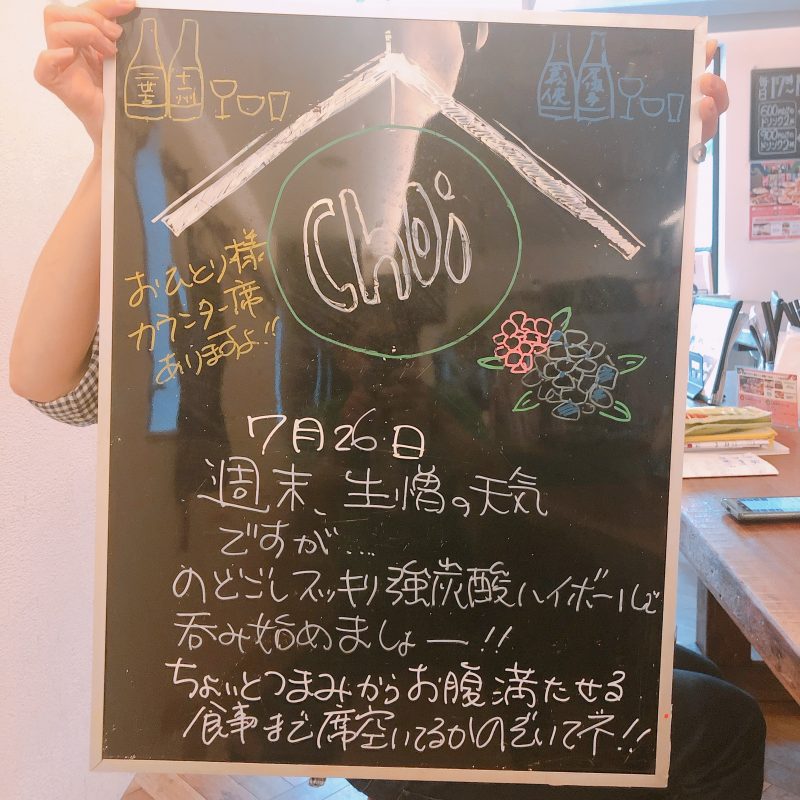 二世古
十一州
Choi
おひとり様
カウンター席
ありますよ!!
7月26日
週末、生憎の天気
ですが…
のどごしスッキリ強炭酸ハイボールで
呑み始めましょー!!
ちょいとつまみからお腹満たせる
食事まで席空いてるかのぞいてネ!!
600円
ドリンク2杯
900円
ドリンク3杯